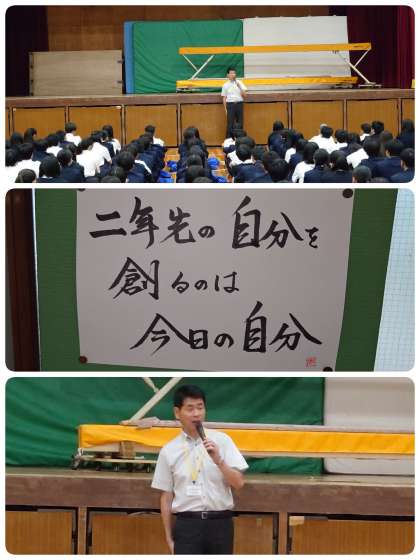 二年先の自分を
創るのは
今日の自分